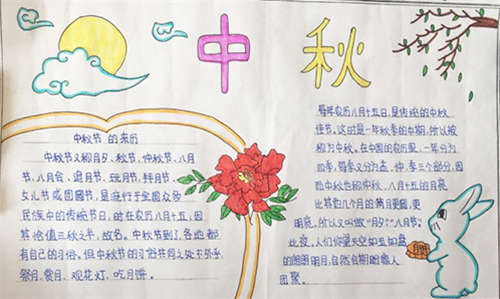 中秋
中秋节的来历
中秋节又称月夕、秋节、仲秋节、八月
节、八月会、追月节、玩月节、拜月节、
女儿节或团圆节,是流行于全国众多
民族中的传统节日,时在农历八月十五,因
其恰值三秋之半,故名。中秋节到了,各地都
有自己的习俗。但中秋节的习俗共同之处不外乎,
祭月、赏月、观花灯、吃月饼。
每年农历八月十五日,是传统的中秋
佳节。这时是一年秋季的中期,所以被
称为中秋。在中国的农历里,一年分为
四季,每季又分为孟、仲、季三个部分,因
而中秋也称仲秋。八月十五的月亮
比其他几个月的满月更圆,更
明亮,所以又叫做“月夕”“八月节”。
此夜,人们仰望天空如玉如盘
的朗朗明月,自然会期盼家人
团聚。